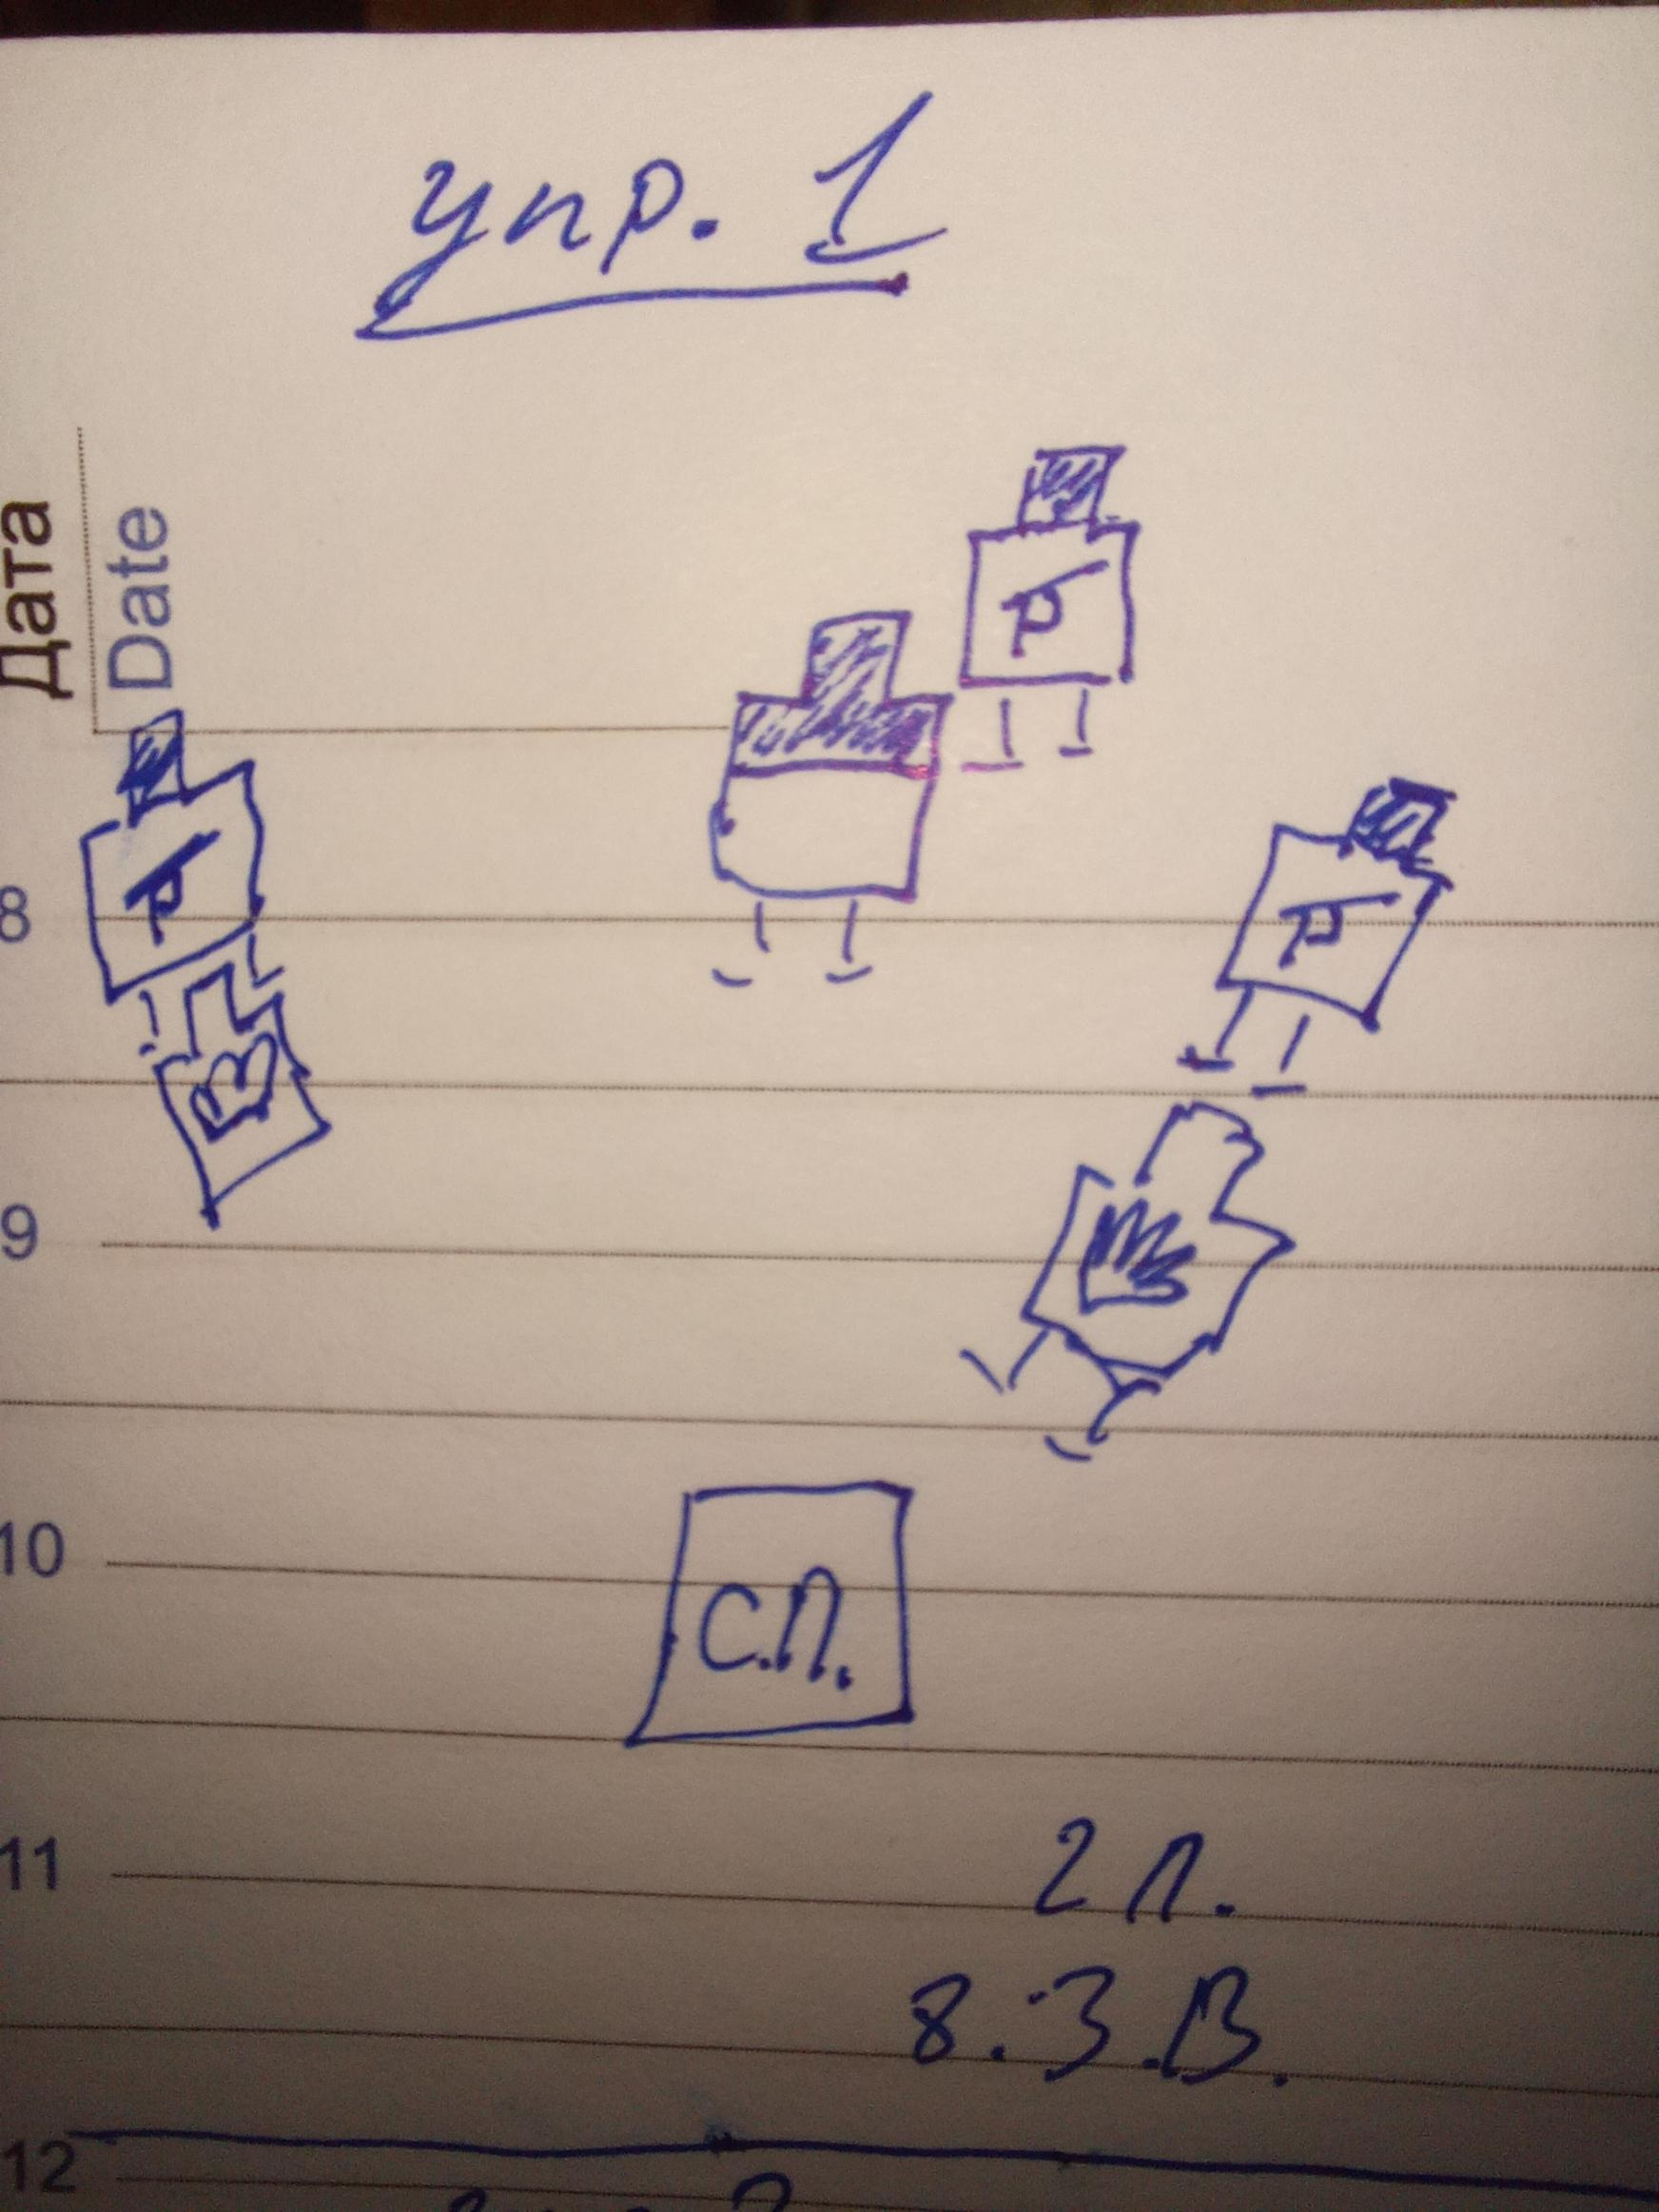 упр. 1
Дата
Date
8
9
10
С.П.
11
2 П.
8. З.В.
12